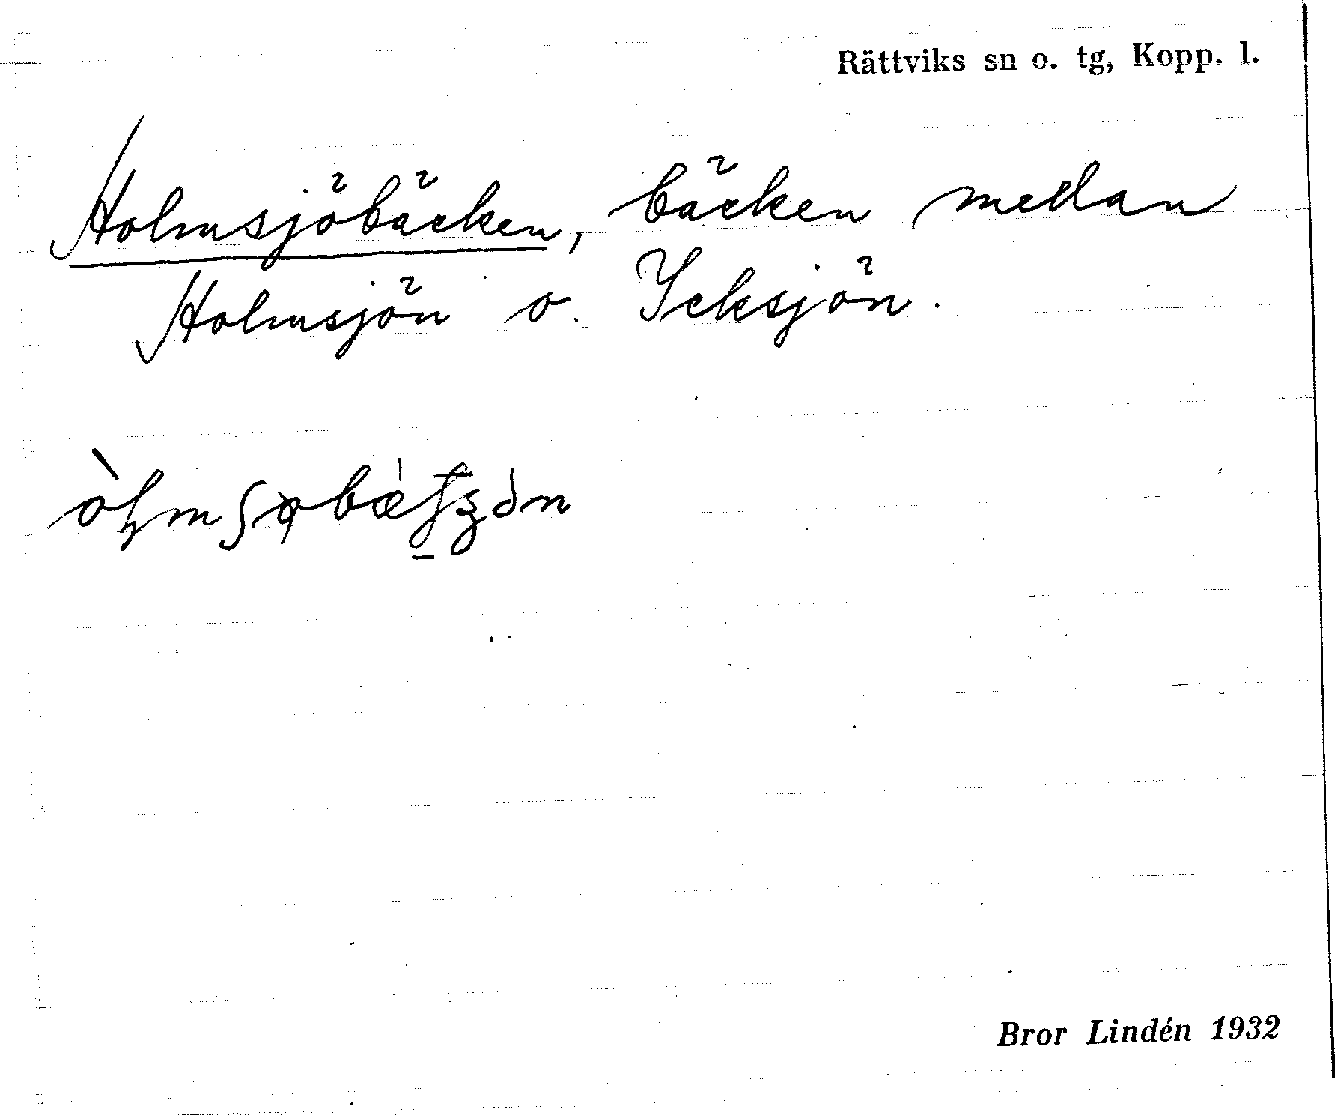 Rättviks sn o. tg, Kopp. l.
Holmsjöbäcken, bäcken medan
Holmsjön o. Ycksjön.
Bror Lindén 1932